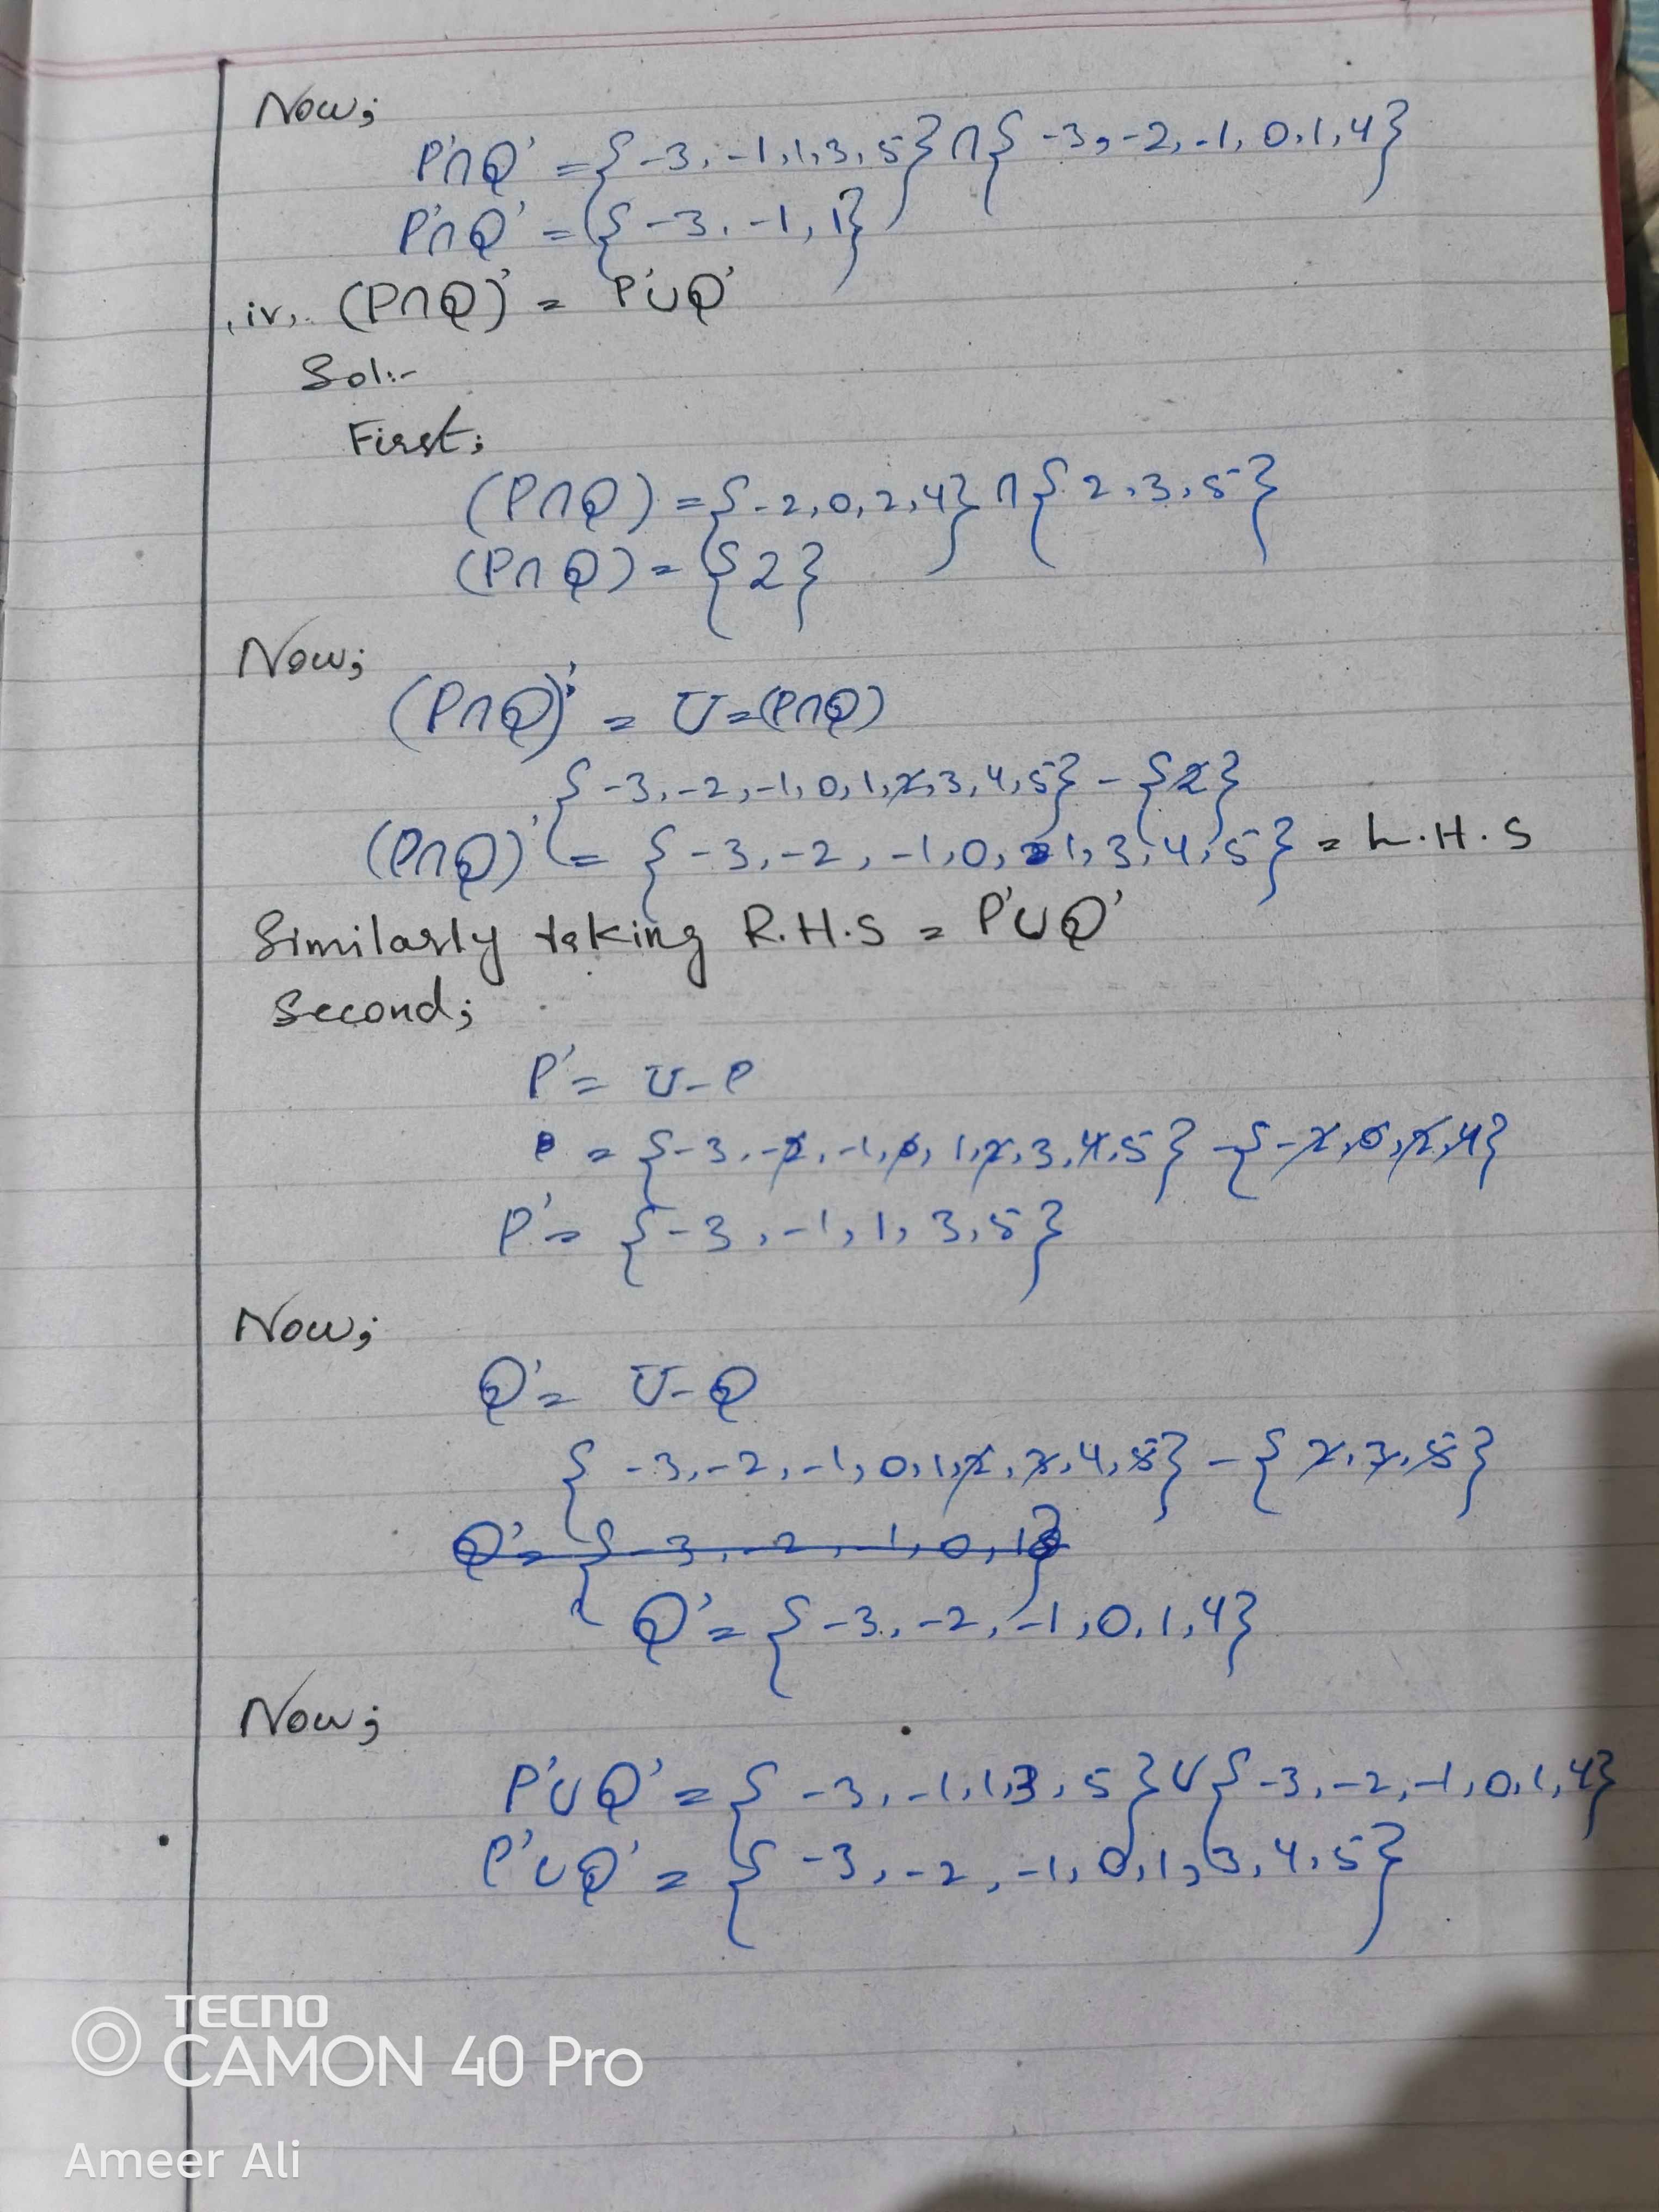 Now;
P'∩Q' = {-3, -1, 1, 3, 5} ∩ {-3, -2, -1, 0, 1, 4}
P'∩Q' = {-3, -1, 1}
iv, (P∩Q)' = P'∪Q'
Sol:-
First;
(P∩Q) = {-2, 0, 2, 4} ∩ {2, 3, 5}
(P∩Q) = {2}
Now;
(P∩Q)' = U = (P∩Q)
{-3, -2, -1, 0, 1, 2, 3, 4, 5} - {2}
(P∩Q)' = {-3, -2, -1, 0, 1, 3, 4, 5} = L.H.S
Similarly taking R.H.S = P'∪Q'
Second;
P' = U - P
= {-3, -2, -1, 0, 1, 2, 3, 4, 5} - {-2, 0, 2, 4}
P' = {-3, -1, 1, 3, 5}
Now;
Q' = U - Q
{-3, -2, -1, 0, 1, 2, 3, 4, 5} - {2, 3, 5}
Q' = {-3, -2, -1, 0, 1}
Q' = {-3, -2, -1, 0, 1, 4}
Now;
P'∪Q' = {-3, -1, 1, 3, 5} ∪ {-3, -2, -1, 0, 1, 4}
P'∪Q' = {-3, -2, -1, 0, 1, 3, 4, 5}
TECNO
CAMON 40 Pro
Ameer Ali